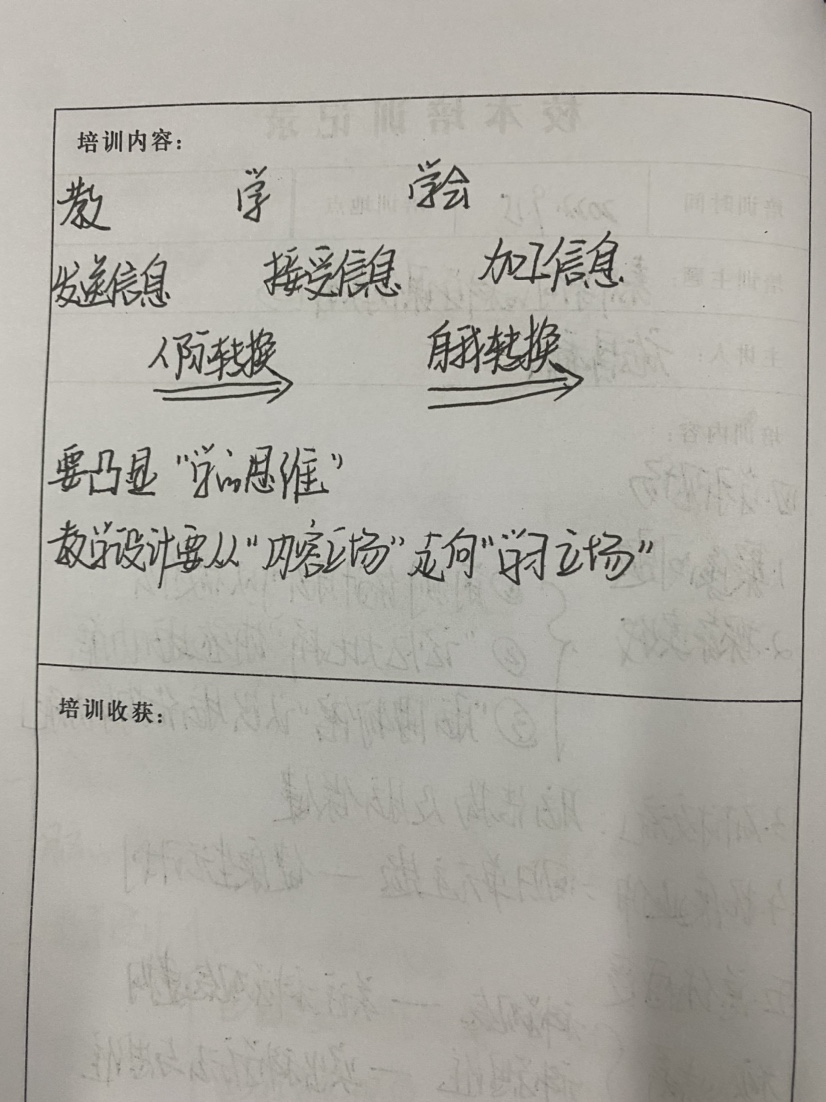 培训内容：
教 学 学会
发送信息 接受信息 加工信息
人际转换 自我转换
要凸显“学的思维”
教学设计要从“内容立场”走向“学习立场”
培训收获：